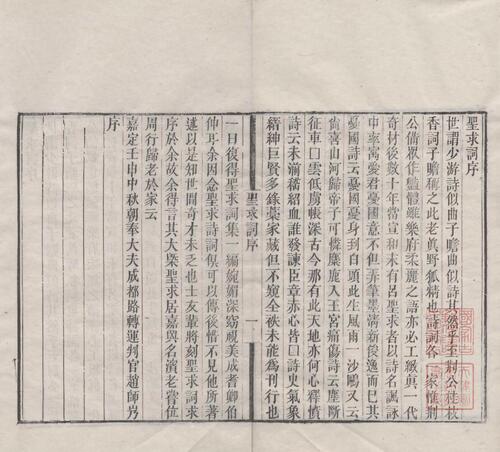 聖求詞序
世謂少游詩似曲子瞻曲似詩其然乎至荆公桂枝
香詞子瞻稱之此老真野狐精也詩詞各一家惟荆
公備衆作艷體雖樂府柔麗之語亦必工緻真一代
奇材後數十年當宣和末有呂聖求者以詩名諷詠
中率寓愛君憂國意不但弄筆墨清新俊逸而已其
憂國詩云憂國憂身到白頭此生風雨一沙鷗又云
尚喜山河歸帝子可憐麋鹿入王宮痛傷詩云塵斷
征車口雲低虜帳深古今那有此天地亦何心釋憤
詩云未湔嵇紹血誰發諫臣章赤心皆口詩史氣象
縉紳巨賢多錄藁家藏但不窺全袟未能為刊行也
聖求詞序
一
一日復得聖求詞集一編婉媚深窈視美成耆卿伯
仲耳余因念聖求詩詞俱可以傳後惜不見他所著
述以是知世間奇才未乏也士友輩將刻聖求詞求
序於余故余得言其大槩聖求居嘉興名濱老嘗位
周行歸老於家云
嘉定壬申中秋朝奉大夫成都路轉運判官趙師岌
序